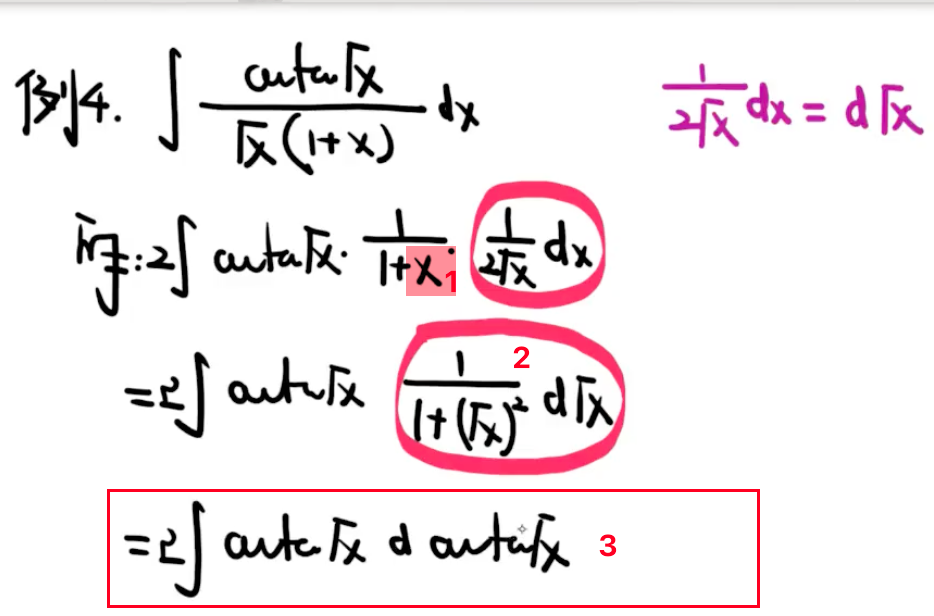 例4. ∫ arctan√x / √x(1+x) dx    1/2√x dx = d√x
原式: 2∫ arctan√x · 1/1+x · 1/2√x dx 1
= 2∫ arctan√x 1/1+(√x)² d√x 2
= 2∫ arctan√x d arctan√x 3